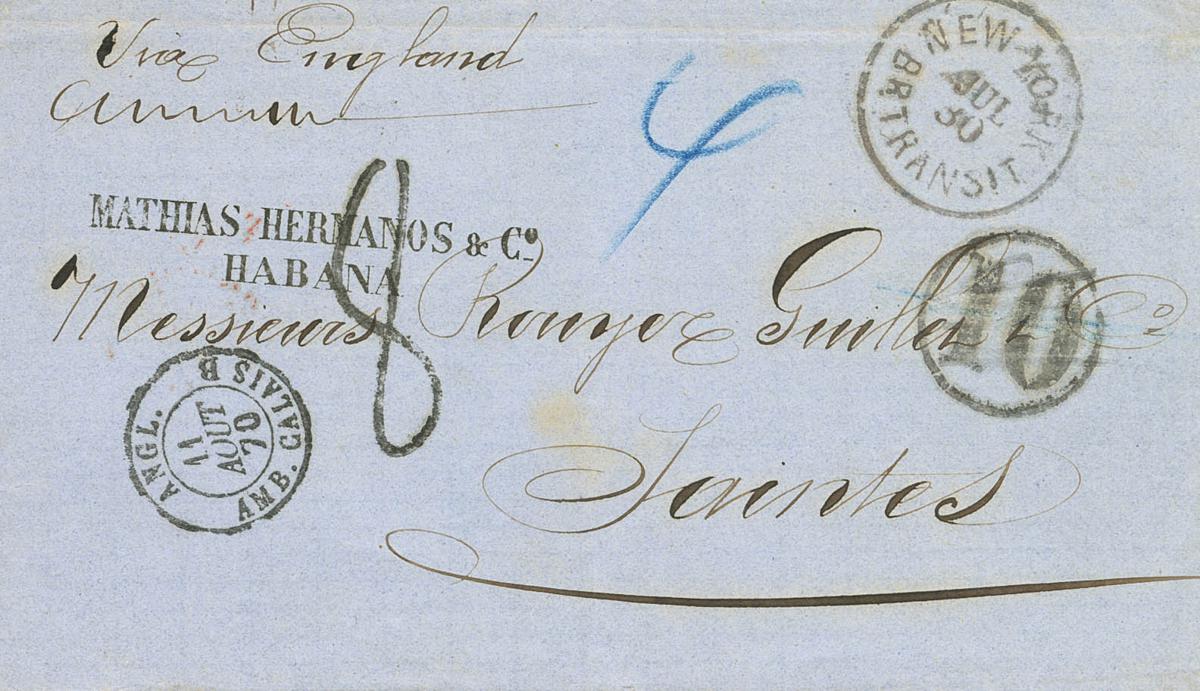 Via England
NEW-YORK
JUL
30
BR TRANSIT
4
MATHIAS HERMANOS & Cº
HABANA
8
10
Messieurs Rouyer Guillet & Cº
Saintes
ANGL. AMB. CALAIS B
11
AOUT
70